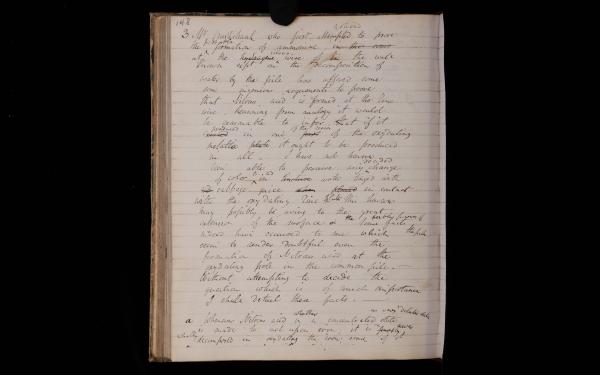 148
noticed
3. Mr Cruikshank who first attempted to prove
the formation of ammonia, in this
at the hydrogene wire of the well
known expt on the decomposition of
water by the pile has offered some
some ingenious arguments to prove
that Nitrous acid is formed at the zinc
wire. Reasoning from analogy it would
be reasonable to infer that if it
produced
in one of the oxydating
metallic plate it ought to be produced
in all. I have not however
been able to perceive any change
of color in water tinged with
cabbage juice when placed in contact
with the oxydating zinc plate this however
may possibly be owing to the great
extension of the surface. some facts
indeed have occurred to me which the pile
seem to render doubtful even the
formation of Nitrous acid at the
oxydating pole in the common pile.
Without attempting to decide the
question which is of much importance
I shall detail these facts.
a Whenever Nitrous acid in a concentrated state
is made to act upon iron, it is never
decomposed in oxydating the iron; some of it